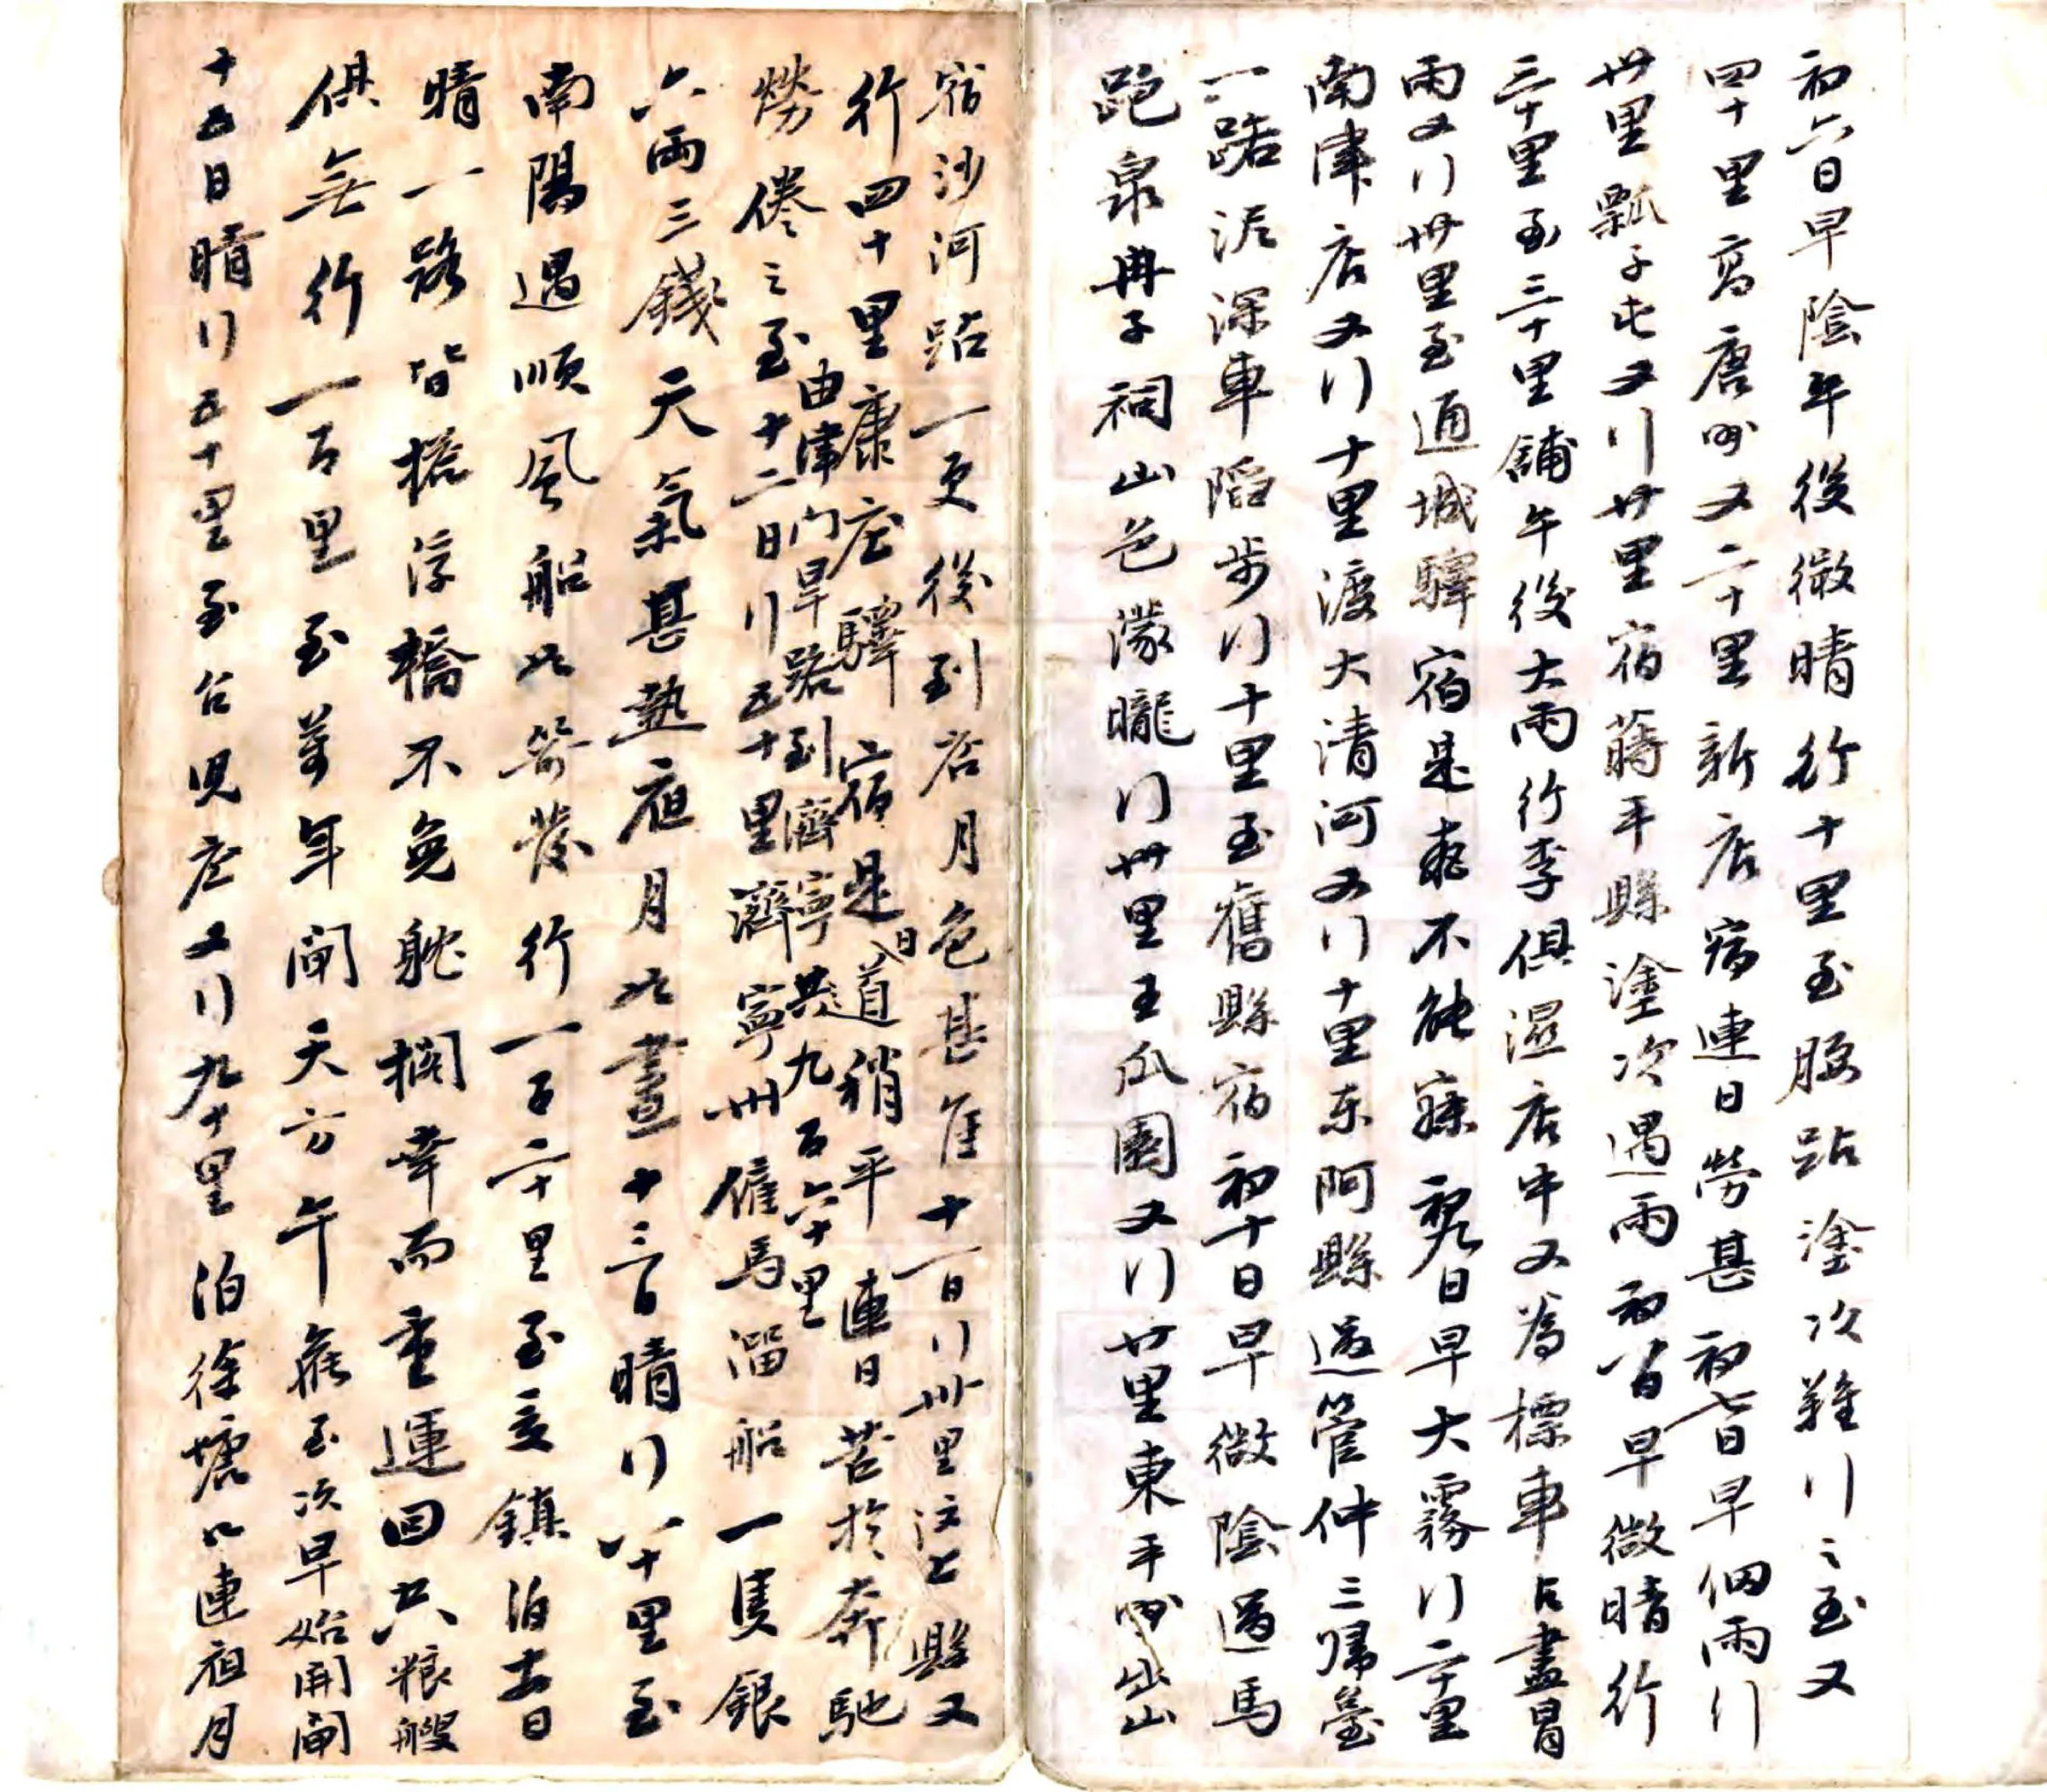 初六日早陰午後微晴行十里至腰站塗次難行之至又
四十里高唐州又二十里新店病連日勞甚初七日早細雨行
廿里瓢子屯又行廿里宿蒔平縣塗次遇雨初八日早微晴行
三十里至三十里鋪午後大雨行李俱濕店中又為標車占盡冒
雨又行卅里至通城驛宿是夜不能寐初九日早大霧行二十里
南津店又行十里渡大清河又行十里東阿縣過管仲三歸臺
一路泥深車陷步行十里至舊縣宿初十日早微陰過馬
跑泉冉子祠山色濛曨行卅里王瓜園又行廿里東平州出山
宿沙河站一更後到店月色甚佳十一日行卅里汶上縣又
行四十里康庄驛宿是日道稍平連日苦於奔馳
勞倦之至十二日行五十里濟寧州僱馬溜船一隻銀
由津門旱路到濟寧共九百六十里
六兩三錢天氣甚熱夜月如晝十三日晴行八十里至
南陽遇順風船如箭發行一百二十里至夏鎮泊十四日
晴一路皆搭浮橋不免躭擱幸而重運回空粮艘
俱無行一百里至萬年閘天方午候至次早始開閘
十五日晴行五十里至台児庄又行九十里泊徐塘口連夜月